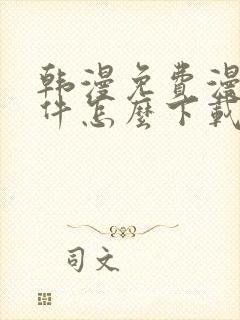 韩漫免费漫
件怎麼下載
司文